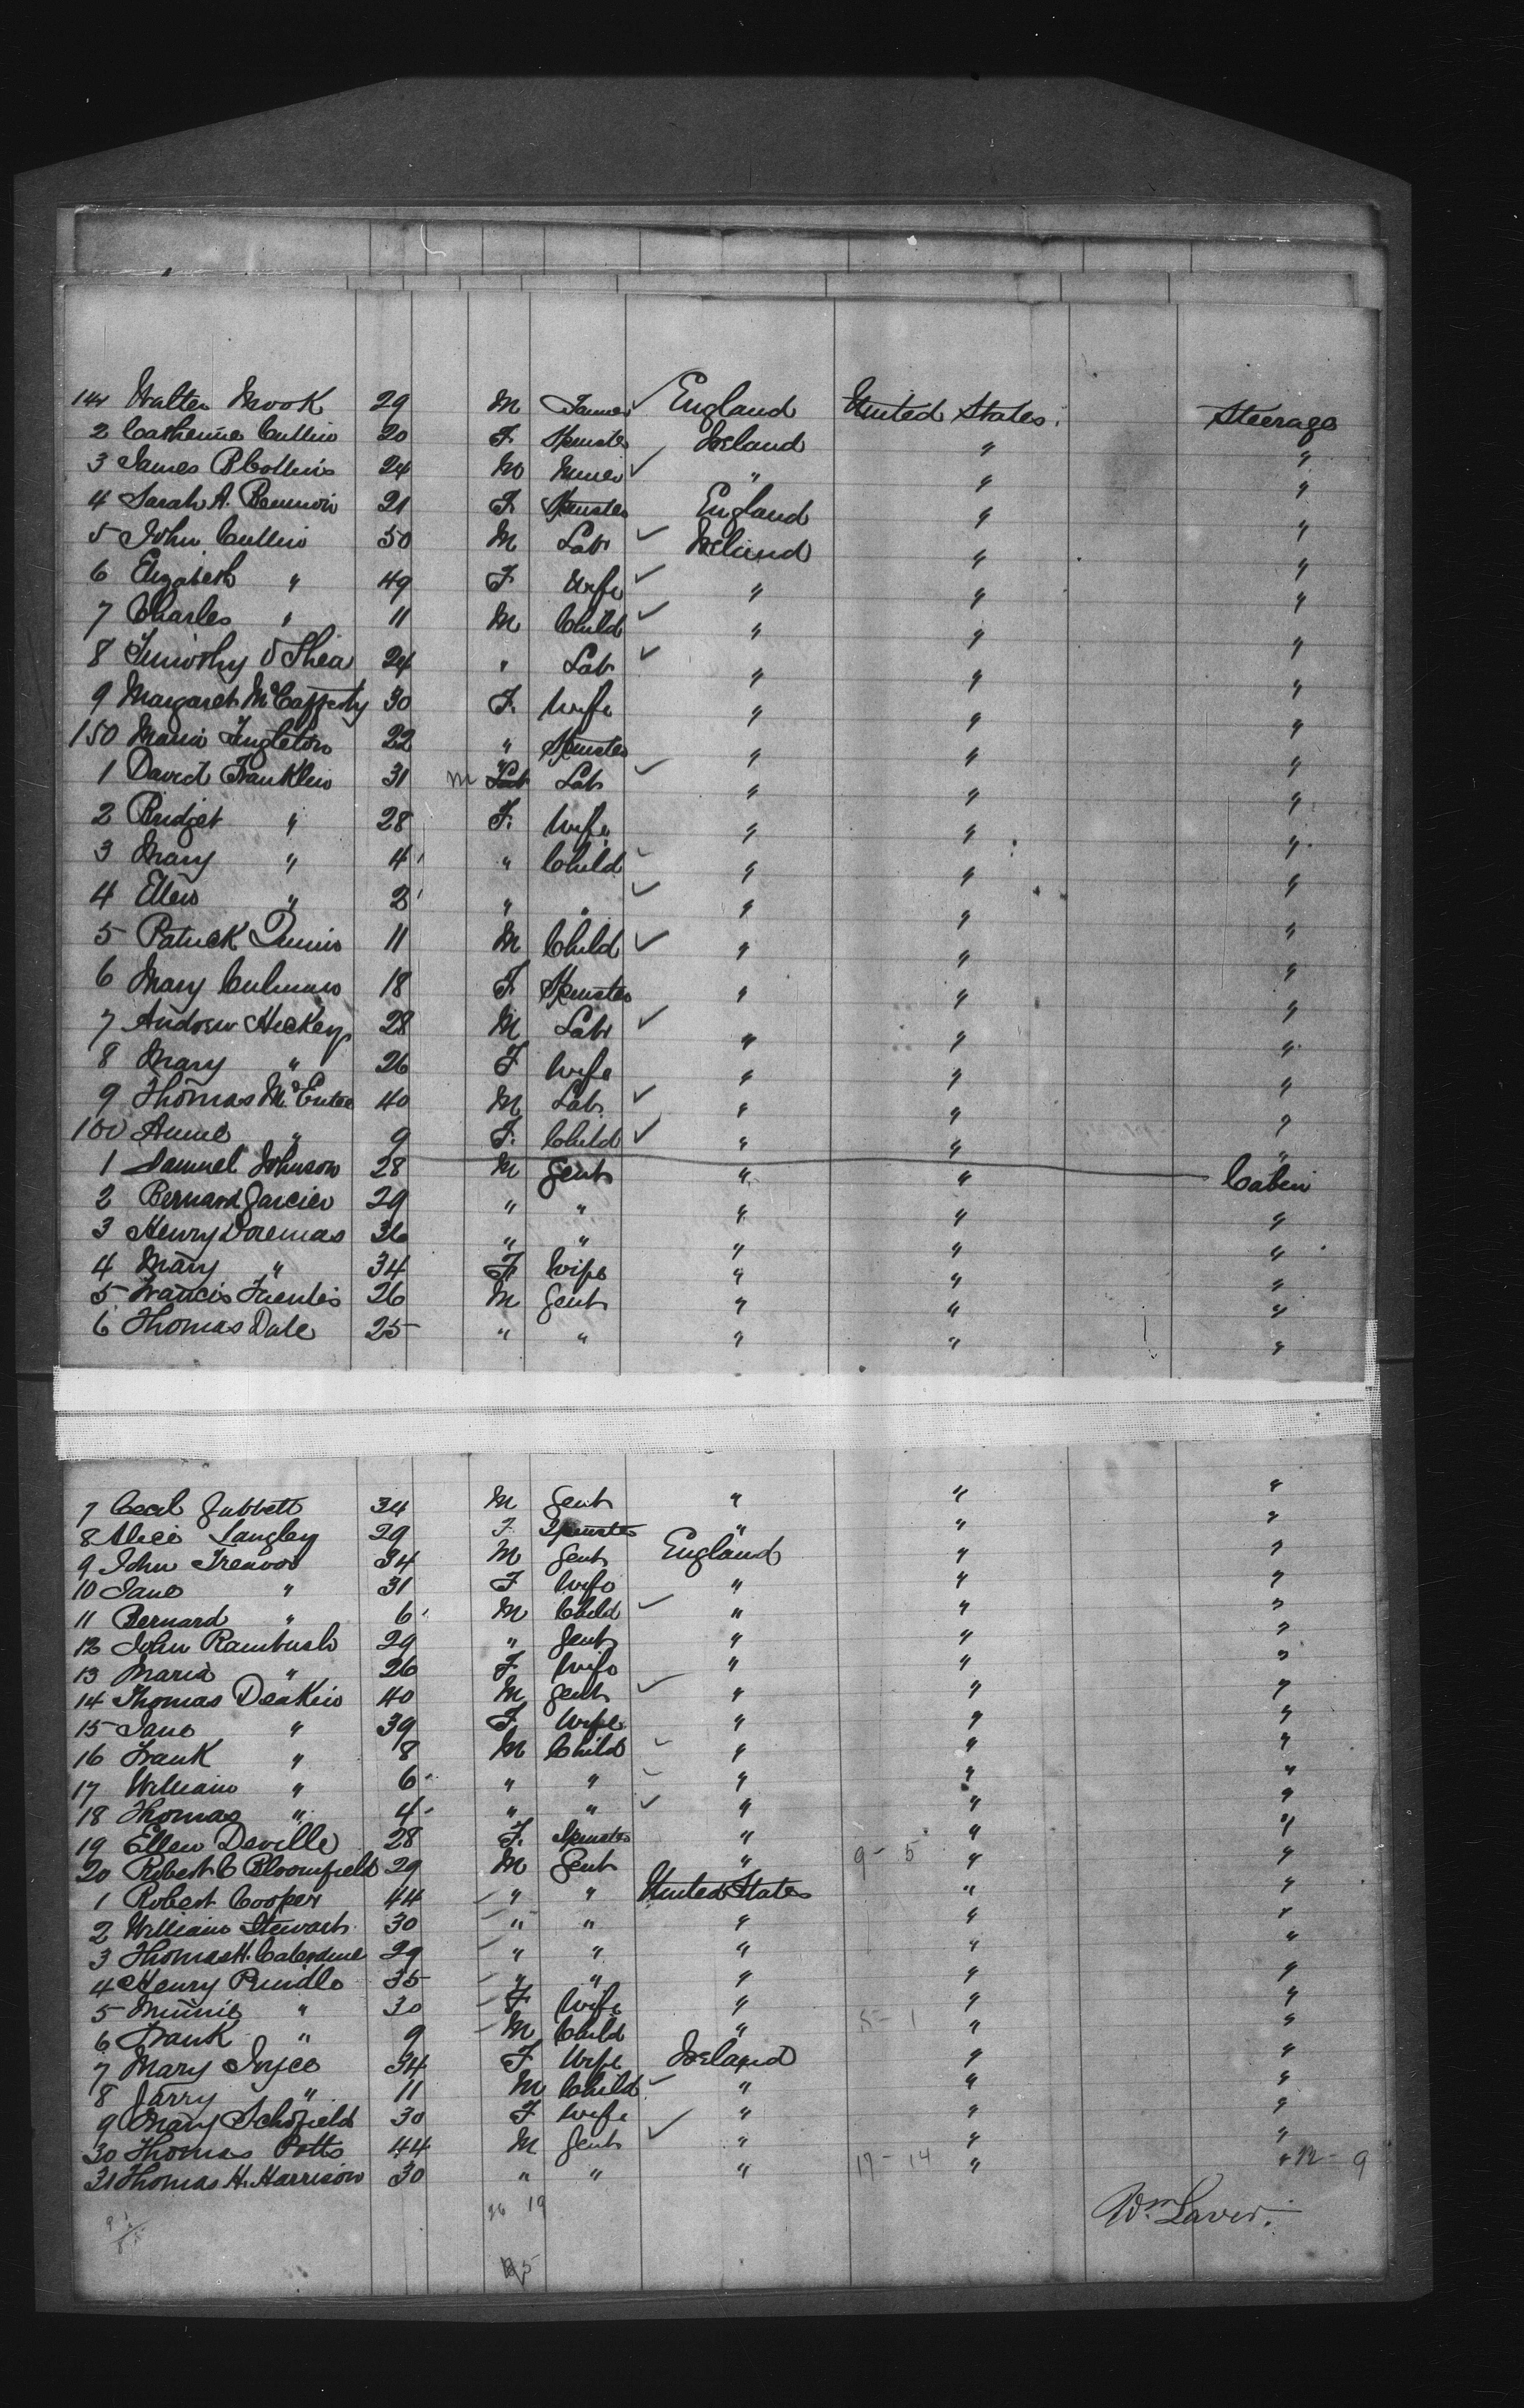 141 Walter Mook 29 M Farmer ✓ England United States. Steerage
2 Catherine Cullin 20 F. Spinster Ireland " "
3 James P Collins 24 M Miner ✓ " " "
4 Sarah A. 21 F. Spinster England " "
5 John Cullin 50 M Labr ✓ Ireland " "
6 Elizabeth " 49 F. Wife ✓ " " "
7 Charles " 11 M Child ✓ " " "
8 Timothy O'Shea 24 " Labr ✓ " " "
9 Margaret McCafferty 30 F. Wife " " "
150 Maria Singleton 22 " Spinster " " "
1 David Franklin 31 M Labr ✓ " " "
2 Bridget " 28 F. Wife " " "
3 Mary " 4 " Child ✓ " " "
4 Ellen " 2 " " ✓ " " "
5 Patrick 11 M Child ✓ " " "
6 Mary 18 F. Spinster " " "
7 Andrew Hickey 28 M Labr ✓ " " "
8 Mary " 26 F Wife " " "
9 Thomas McEntee 40 M Labr ✓ " " "
160 Annie " 9 F. Child ✓ " " "
1 Samuel Johnson 28 M Gent " " Cabin
2 Bernard Garcier 29 " " " " "
3 Henry Doremas 36 " " " " "
4 Mary " 34 F. Wife " " "
5 Francis Fuentes 26 M Gent " " "
6 Thomas Dale 25 " " " " "
7 Cecil Jubbett 34 M Gent " " "
8 Alice Langley 29 F. Spinster " " "
9 John Treavor 34 M Gent England " "
10 Jane " 31 F Wife " " "
11 Bernard " 6 M Child ✓ " " "
12 John Rambush 29 " Gent " " "
13 Maria " 26 F Wife " " "
14 Thomas Deakin 40 M Gent ✓ " " "
15 Jane " 39 F. Wife " " "
16 Frank " 8 M Child ✓ " " "
17 William " 6 " " ✓ " " "
18 Thomas " 4 " " ✓ " " "
19 Ellen Deville 28 F. Spinster " " "
20 Robert C Bloomfield 29 M Gent " 9 - 5 " "
1 Robert Cooper 44 " " United States " "
2 William Stewart 30 " " " " "
3 Thomas H. 29 " " " " "
4 Henry Prindle 35 " " " " "
5 Minnie " 30 F Wife " " "
6 Frank " 9 M Child " 5 - 1 " "
7 Mary Joyce 34 F Wife Ireland " "
8 Jarry " 11 M Child ✓ " " "
9 Mary Schofield 30 F Wife " " "
30 Thomas Potts 44 M Gent ✓ " " "
31 Thomas H. Harrison 30 " " " 17 - 14 " " 12 - 9
26 19
Wm Laver.